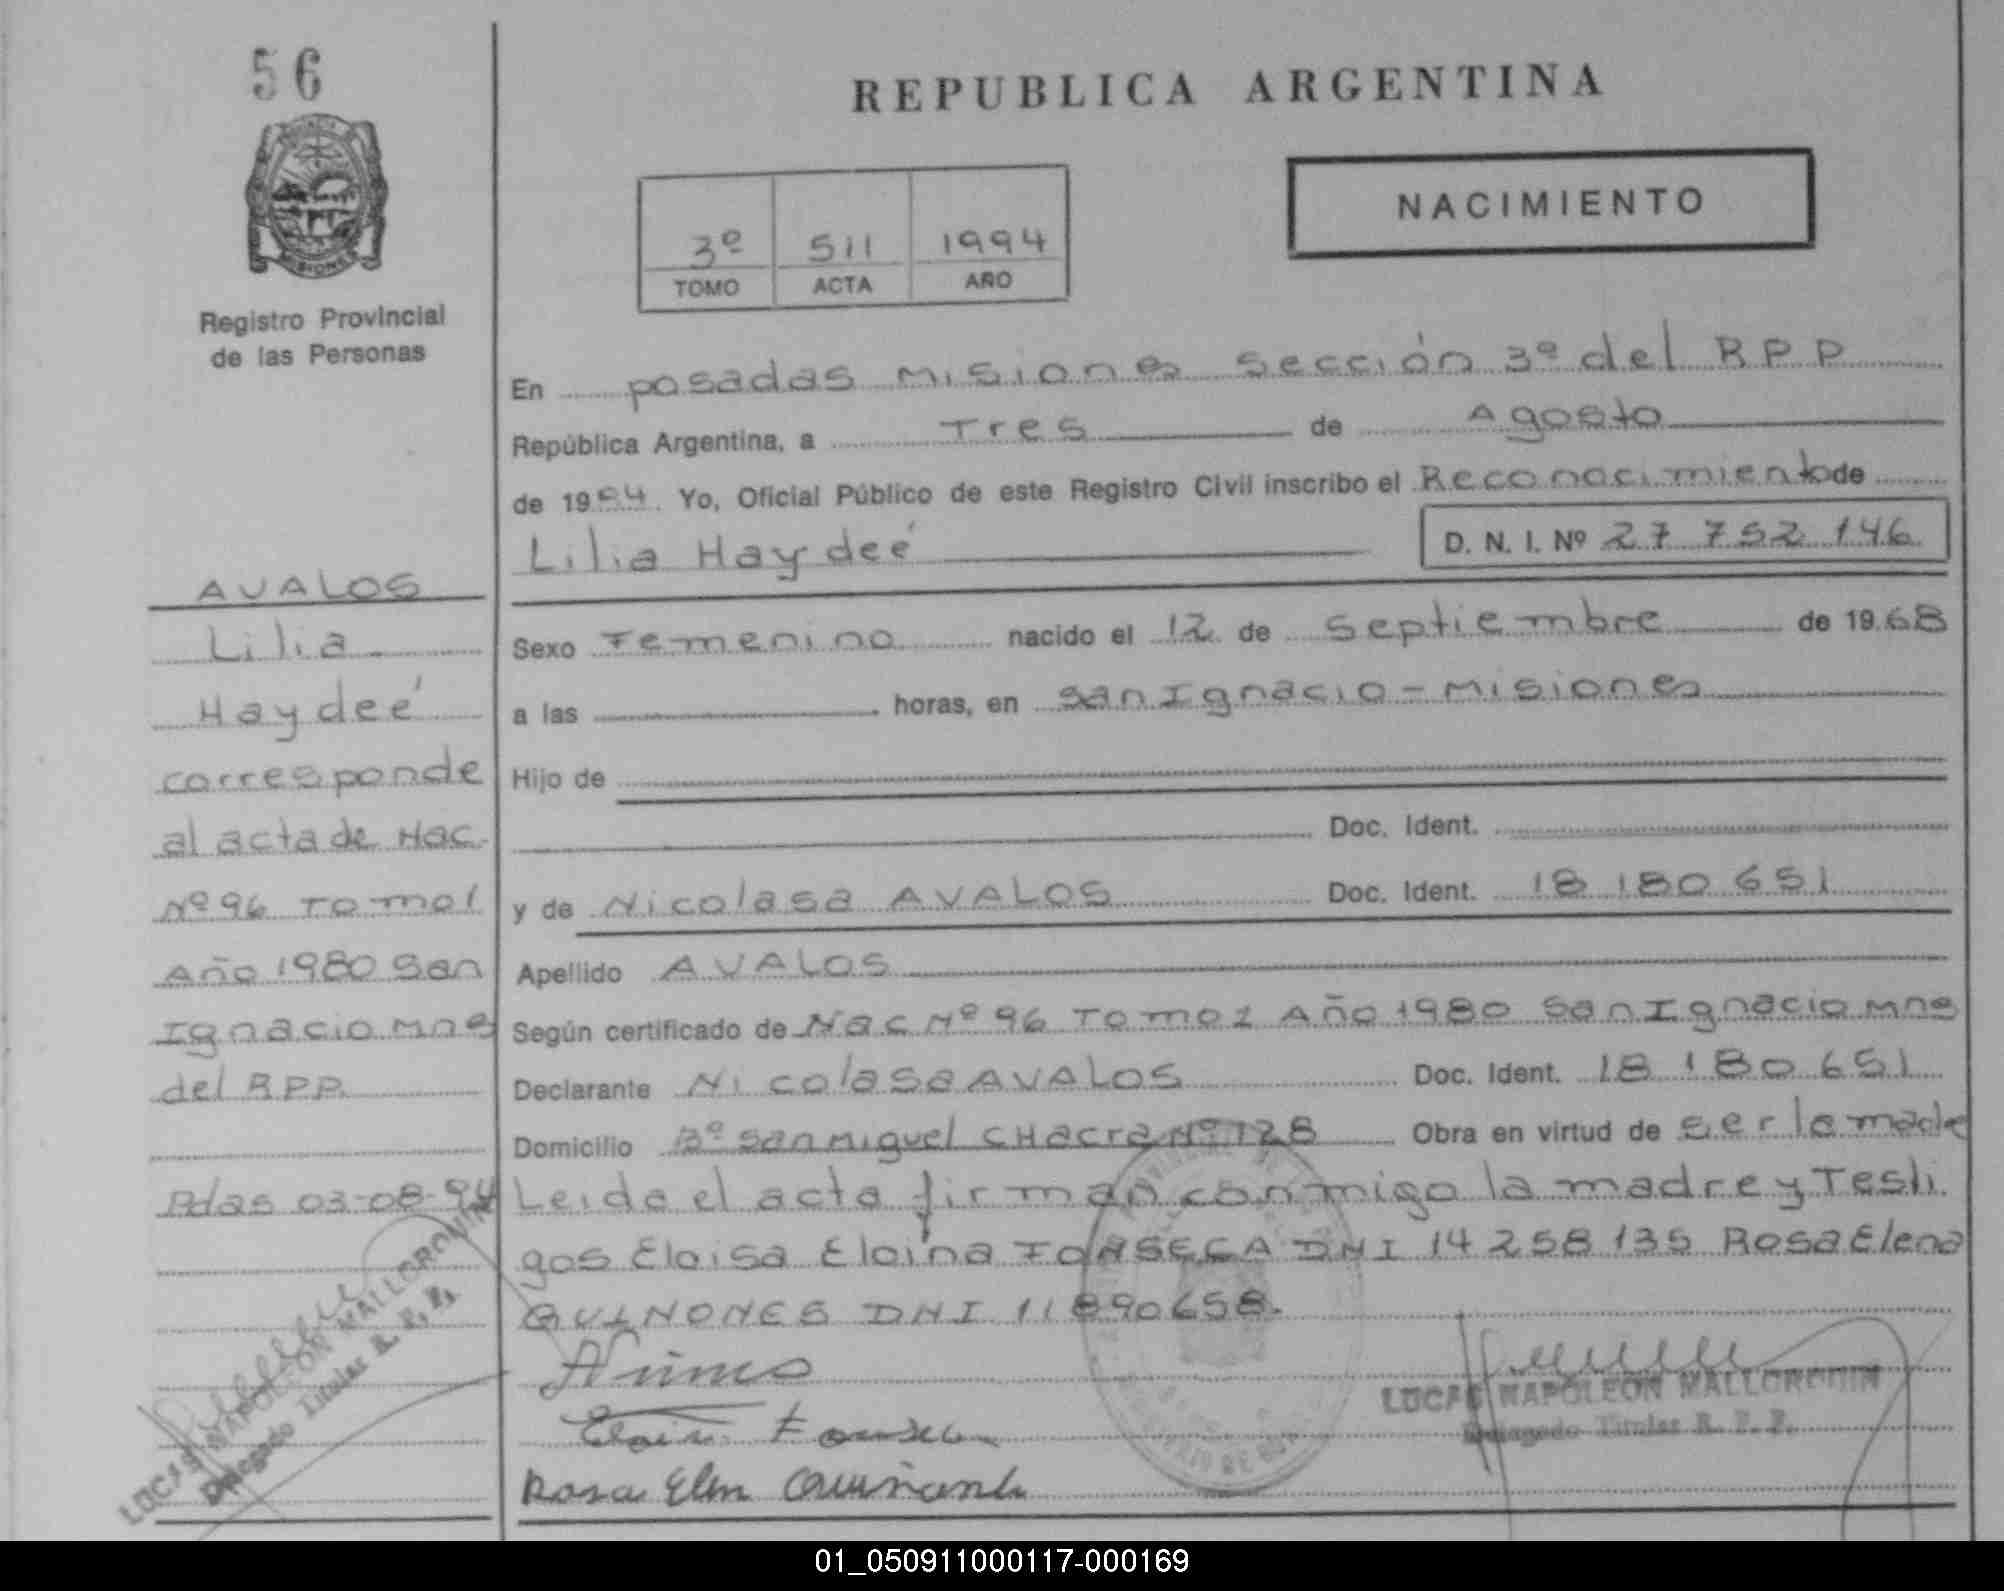 56
REPUBLICA ARGENTINA
NACIMIENTO
3º 511 1994
TOMO ACTA AÑO
MISIONES
Registro Provincial
de las Personas
AVALOS
Lilia
Haydeé
corresponde
al acta de Nac.
Nº 96 Tomo 1
Año 1980 San
Ignacio Mnes
del RPP.
Pdas 03-08-94
LUCAS NAPOLEON MALLORQUIN
Delegado Titular R. P. P.
En posadas Misiones Sección 3º del RPP
República Argentina, a Tres de Agosto
de 1994. Yo, Oficial Público de este Registro Civil inscribo el Reconocimiento de
Lilia Haydeé D. N. I. Nº 27 752 146
Sexo Femenino nacido el 12 de Septiembre de 1968
a las horas, en San Ignacio - Misiones
Hijo de
Doc. Ident.
y de Nicolasa AVALOS Doc. Ident. 18 180 651
Apellido AVALOS
Según certificado de Nac Nº 96 Tomo 1 Año 1980 San Ignacio Mnes
Declarante Nicolasa AVALOS Doc. Ident. 18 180 651
Domicilio Bº San Miguel CHacra Nº 128 Obra en virtud de ser la madre
Leida el acta firman conmigo la madre y Testi
gos Eloisa Eloina FONSECA DNI 14 258 135 Rosa Elena
QUINONES DNI 11890658.
Eloisa Fonseca
Rosa Elena Quiñones
LUCAS NAPOLEON MALLORQUIN
Delegado Titular R. P. P.
01_050911000117-000169